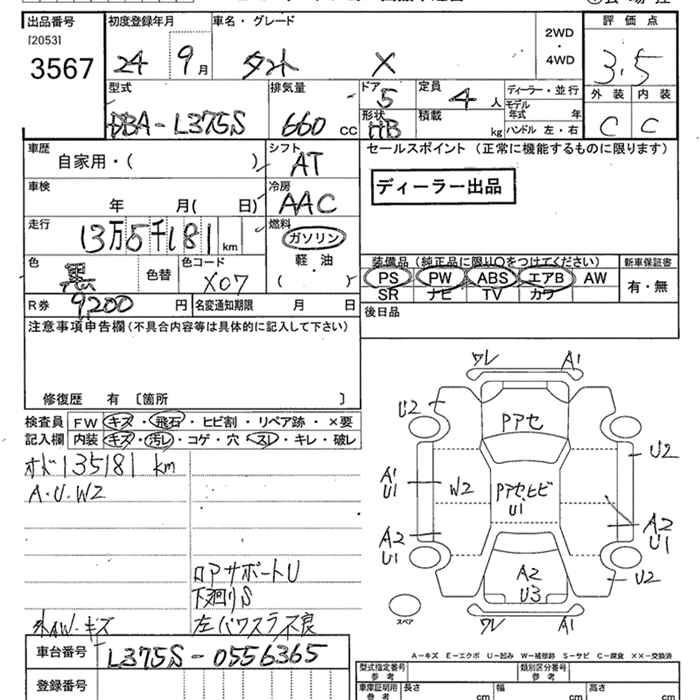 出品番号 初度登録年月 車名・グレード 評価点
[2053]
3567
24 9月 タント X
2WD・4WD
3.5
型式 排気量 ドア 定員 ディーラー・並行 外装 内装
DBA-L375S 660 CC
5 4人
モデル年式 年
形状 積載 kg ハンドル 左・右
HB
C C
車歴 シフト セールスポイント (正常に機能するものに限ります)
自家用・( ) AT
ディーラー出品
車検 冷房
年 月( 日) AAC
走行 燃料
13万5千181km ガソリン
軽・油
( )
色 色替 色コード
黒 X07
装備品 (純正品に限り○をつけてください) 新車保証書
PS PW ABS エアB AW 有・無
SR ナビ TV カワ
R券 9,200 円 名変通知期限 月 日
後日品
注意事項申告欄(不具合内容等は具体的に記入して下さい)
修復歴 有 〔箇所 〕
検査員記入欄
FW キズ・飛石・ヒビ割・リペア跡・×要
内装 キズ・汚レ・コゲ・穴・スレ・キレ・破レ
オド135181km
A・U・W2
ロアサポートU
下廻りS
外AW・キズ 左パワスラ不良
ワレ A1
U2
Pアセ
U2
A1
U1
W2
Pアセ、ヒビ
U1
A2
U1
A2
U1
A2
U3
U2
スペア
ワレ A1
A-キズ E-エクボ U-凹み W-補修跡 S-サビ C-腐食 XX-交換済
車台番号 L375S-0556365
登録番号
型式指定番号 参考 類別区分番号 参考
車庫証明用 参考 長さ cm 幅 cm 高さ cm